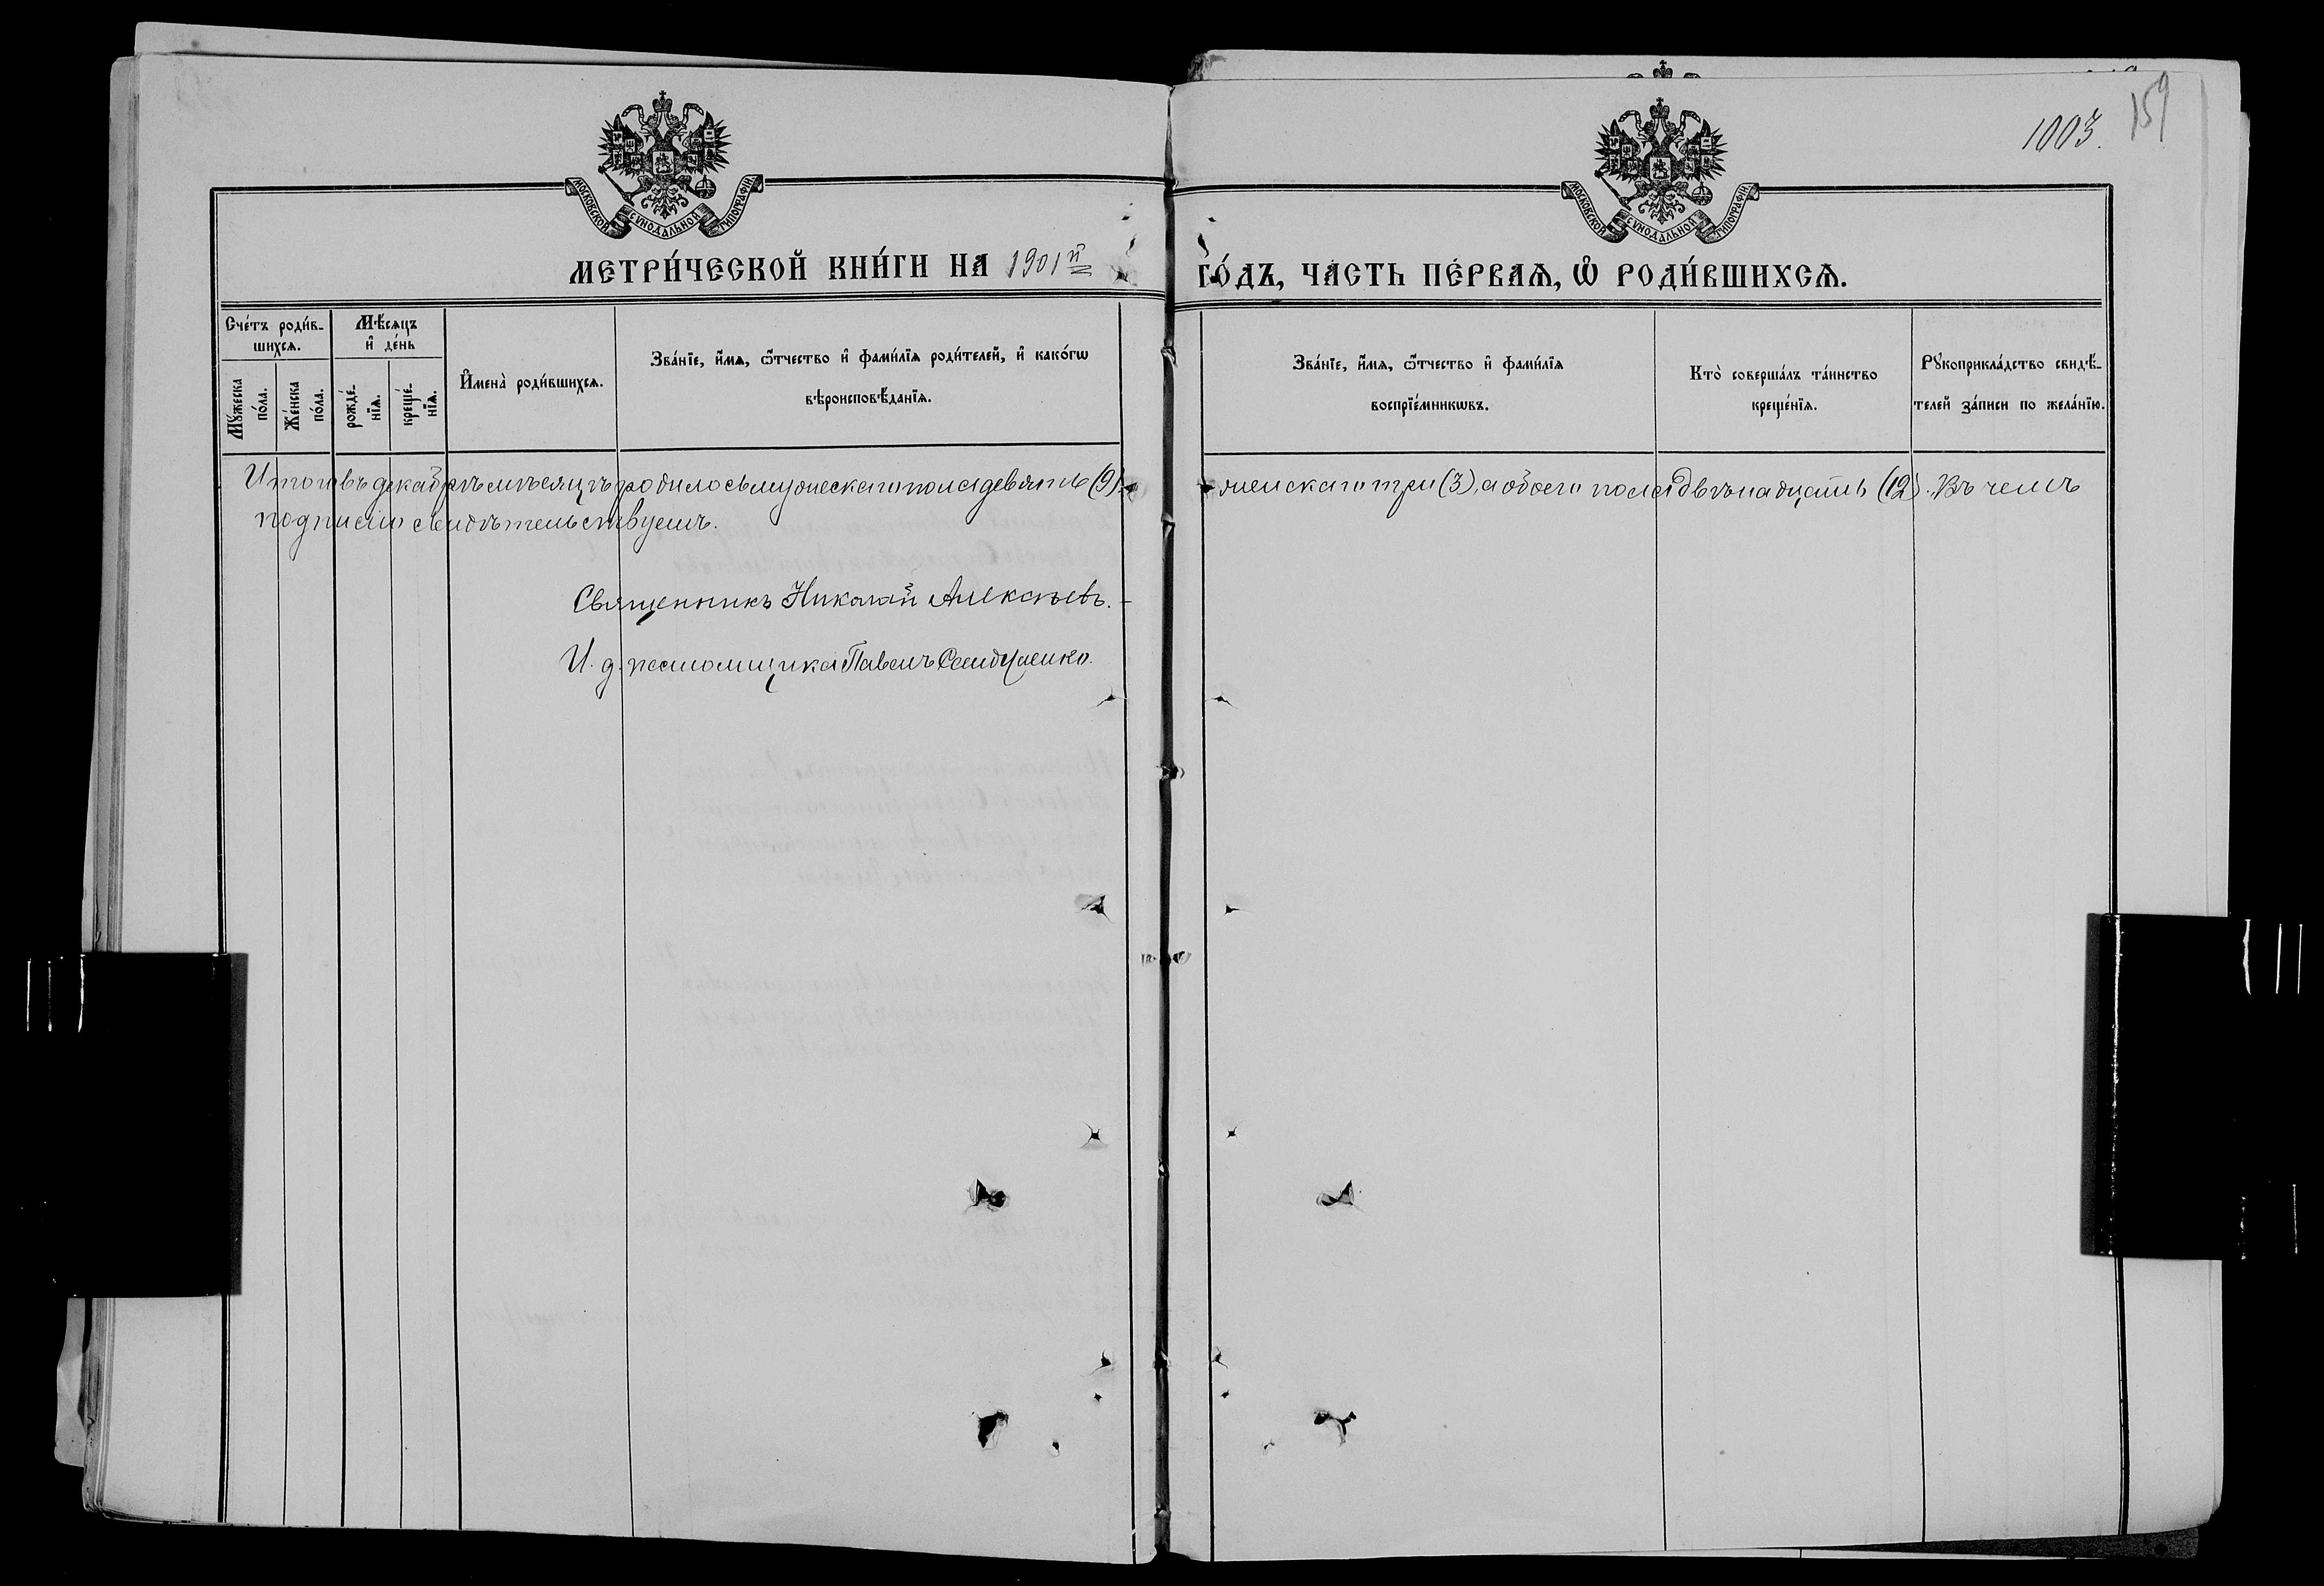 159
1003.
МОСКОВСКОЙ СѴНОДАЛЬНОЙ ТИПОГРАФІИ.
МОСКОВСКОЙ СѴНОДАЛЬНОЙ ТИПОГРАФІИ.
МЕТРИ́ЧЕСКОЙ КНИ́ГИ НА 1901й ГО́ДЪ, ЧА́СТЬ ПЕ́РВАѦ, Ѡ҆ РОДИ́ВШИХСѦ.
Сче́тъ роди́в-
шихсѧ.
Мꙋ́жеска по́ла.
Же́нска по́ла.
Мѣ́сѧцъ
и҆ де́нь
рожде́-
нїѧ.
креще́-
нїѧ.
И҆мена̀ роди́вшихсѧ.
Зва́нїе, и҆́мѧ, ѻ҆́тчество и҆ фами́лїѧ роди́телей, и҆ како́гѡ
вѣроисповѣ́данїѧ.
Зва́нїе, и҆́мѧ, ѻ҆́тчество и҆ фами́лїѧ
воспрїе́мникѡвъ.
Кто̀ соверша́лъ та́инство
креще́нїѧ.
Рꙋкоприкла́дство свидѣ́-
телей за́писи по жела́нїю.
Итого въ декабрѣ мѣсяцѣ родилось мужескаго пола девять (9), женскаго три (3), а обоего пола двѣнадцать (12). Въ чемъ
подписью свидѣтельствуемъ.
Священникъ Николай Алексѣевъ.
И. д. псаломщика Павелъ